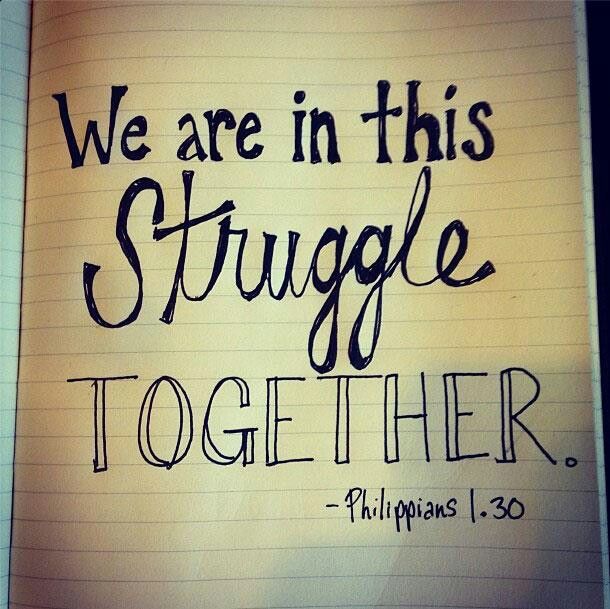 We are in this
Struggle
TOGETHER.
- Philippians 1.30